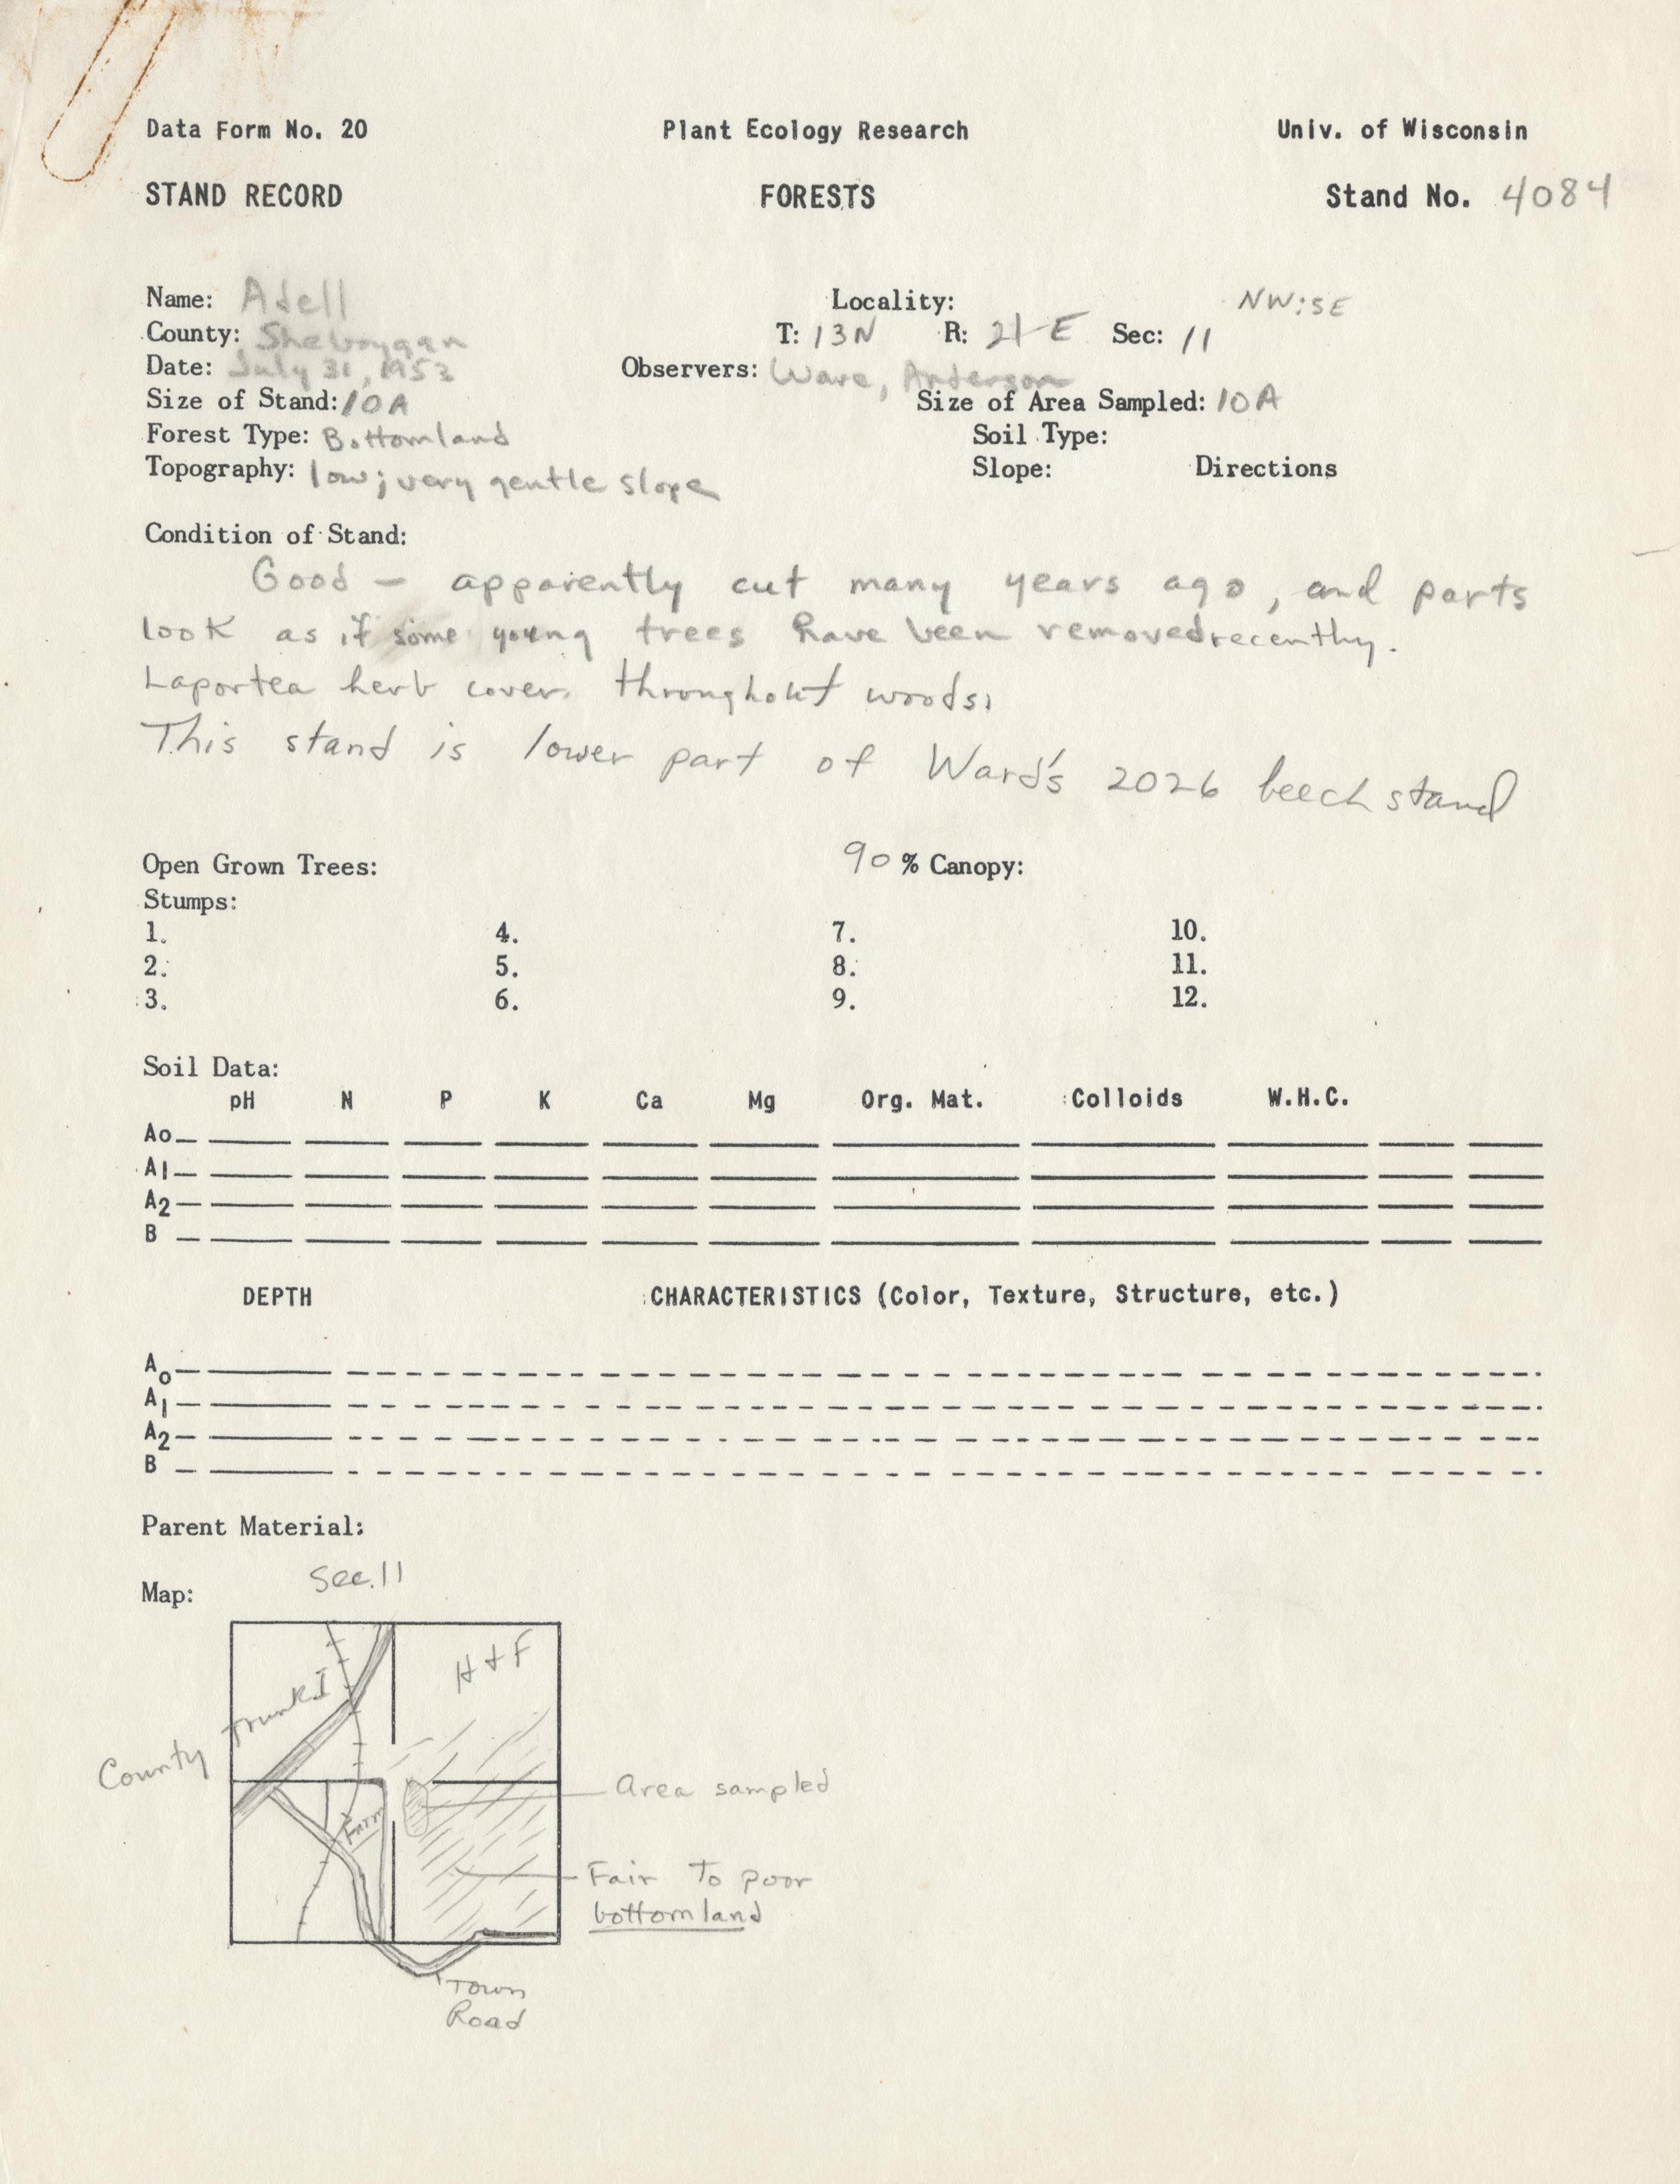 Data Form No. 20 Plant Ecology Research Univ. of Wisconsin
STAND RECORD FORESTS Stand No. 4084
Name: Adell Locality: NW:SE
County: Sheboygan T: 13N R: 21 E Sec: 11
Date: July 31, 1953 Observers: Ware, Anderson
Size of Stand: 10A Size of Area Sampled: 10A
Forest Type: Bottomland Soil Type:
Topography: low; very gentle slope Slope: Directions
Condition of Stand:
Good — apparently cut many years ago, and parts
look as if some young trees have been removed recently.
Laportea herb cover throughout woods.
This stand is lower part of Ward's 2026 beech stand
Open Grown Trees: 90 % Canopy:
Stumps:
1. 4. 7. 10.
2. 5. 8. 11.
3. 6. 9. 12.
Soil Data:
pH N P K Ca Mg Org. Mat. Colloids W.H.C.
Ao
A1
A2
B
DEPTH CHARACTERISTICS (Color, Texture, Structure, etc.)
Ao
A1
A2
B
Parent Material:
Map: Sec. 11
H + F
County Trunk I
Area sampled
Farm
Fair to poor
bottomland
Town
Road